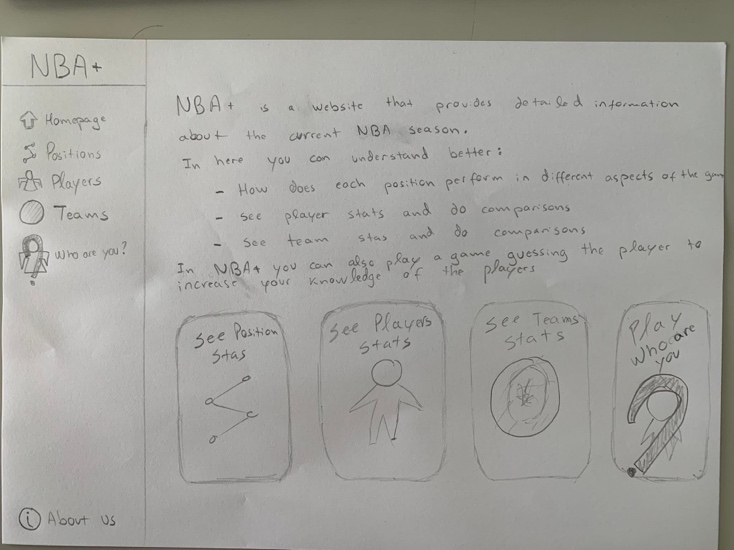 NBA+
Homepage
Positions
Players
Teams
Who are you?
About us
NBA+ is a website that provides detailed information
about the current NBA season.
In here you can understand better:
- How does each position perform in different aspects of the gam
- see player stats and do comparisons
- see team stas and do comparisons
In NBA+ you can also play a game guessing the player to
increase your knowledge of the players
See Position
Stas
See Players
Stats
See Teams
Stats
Play
Who are
you